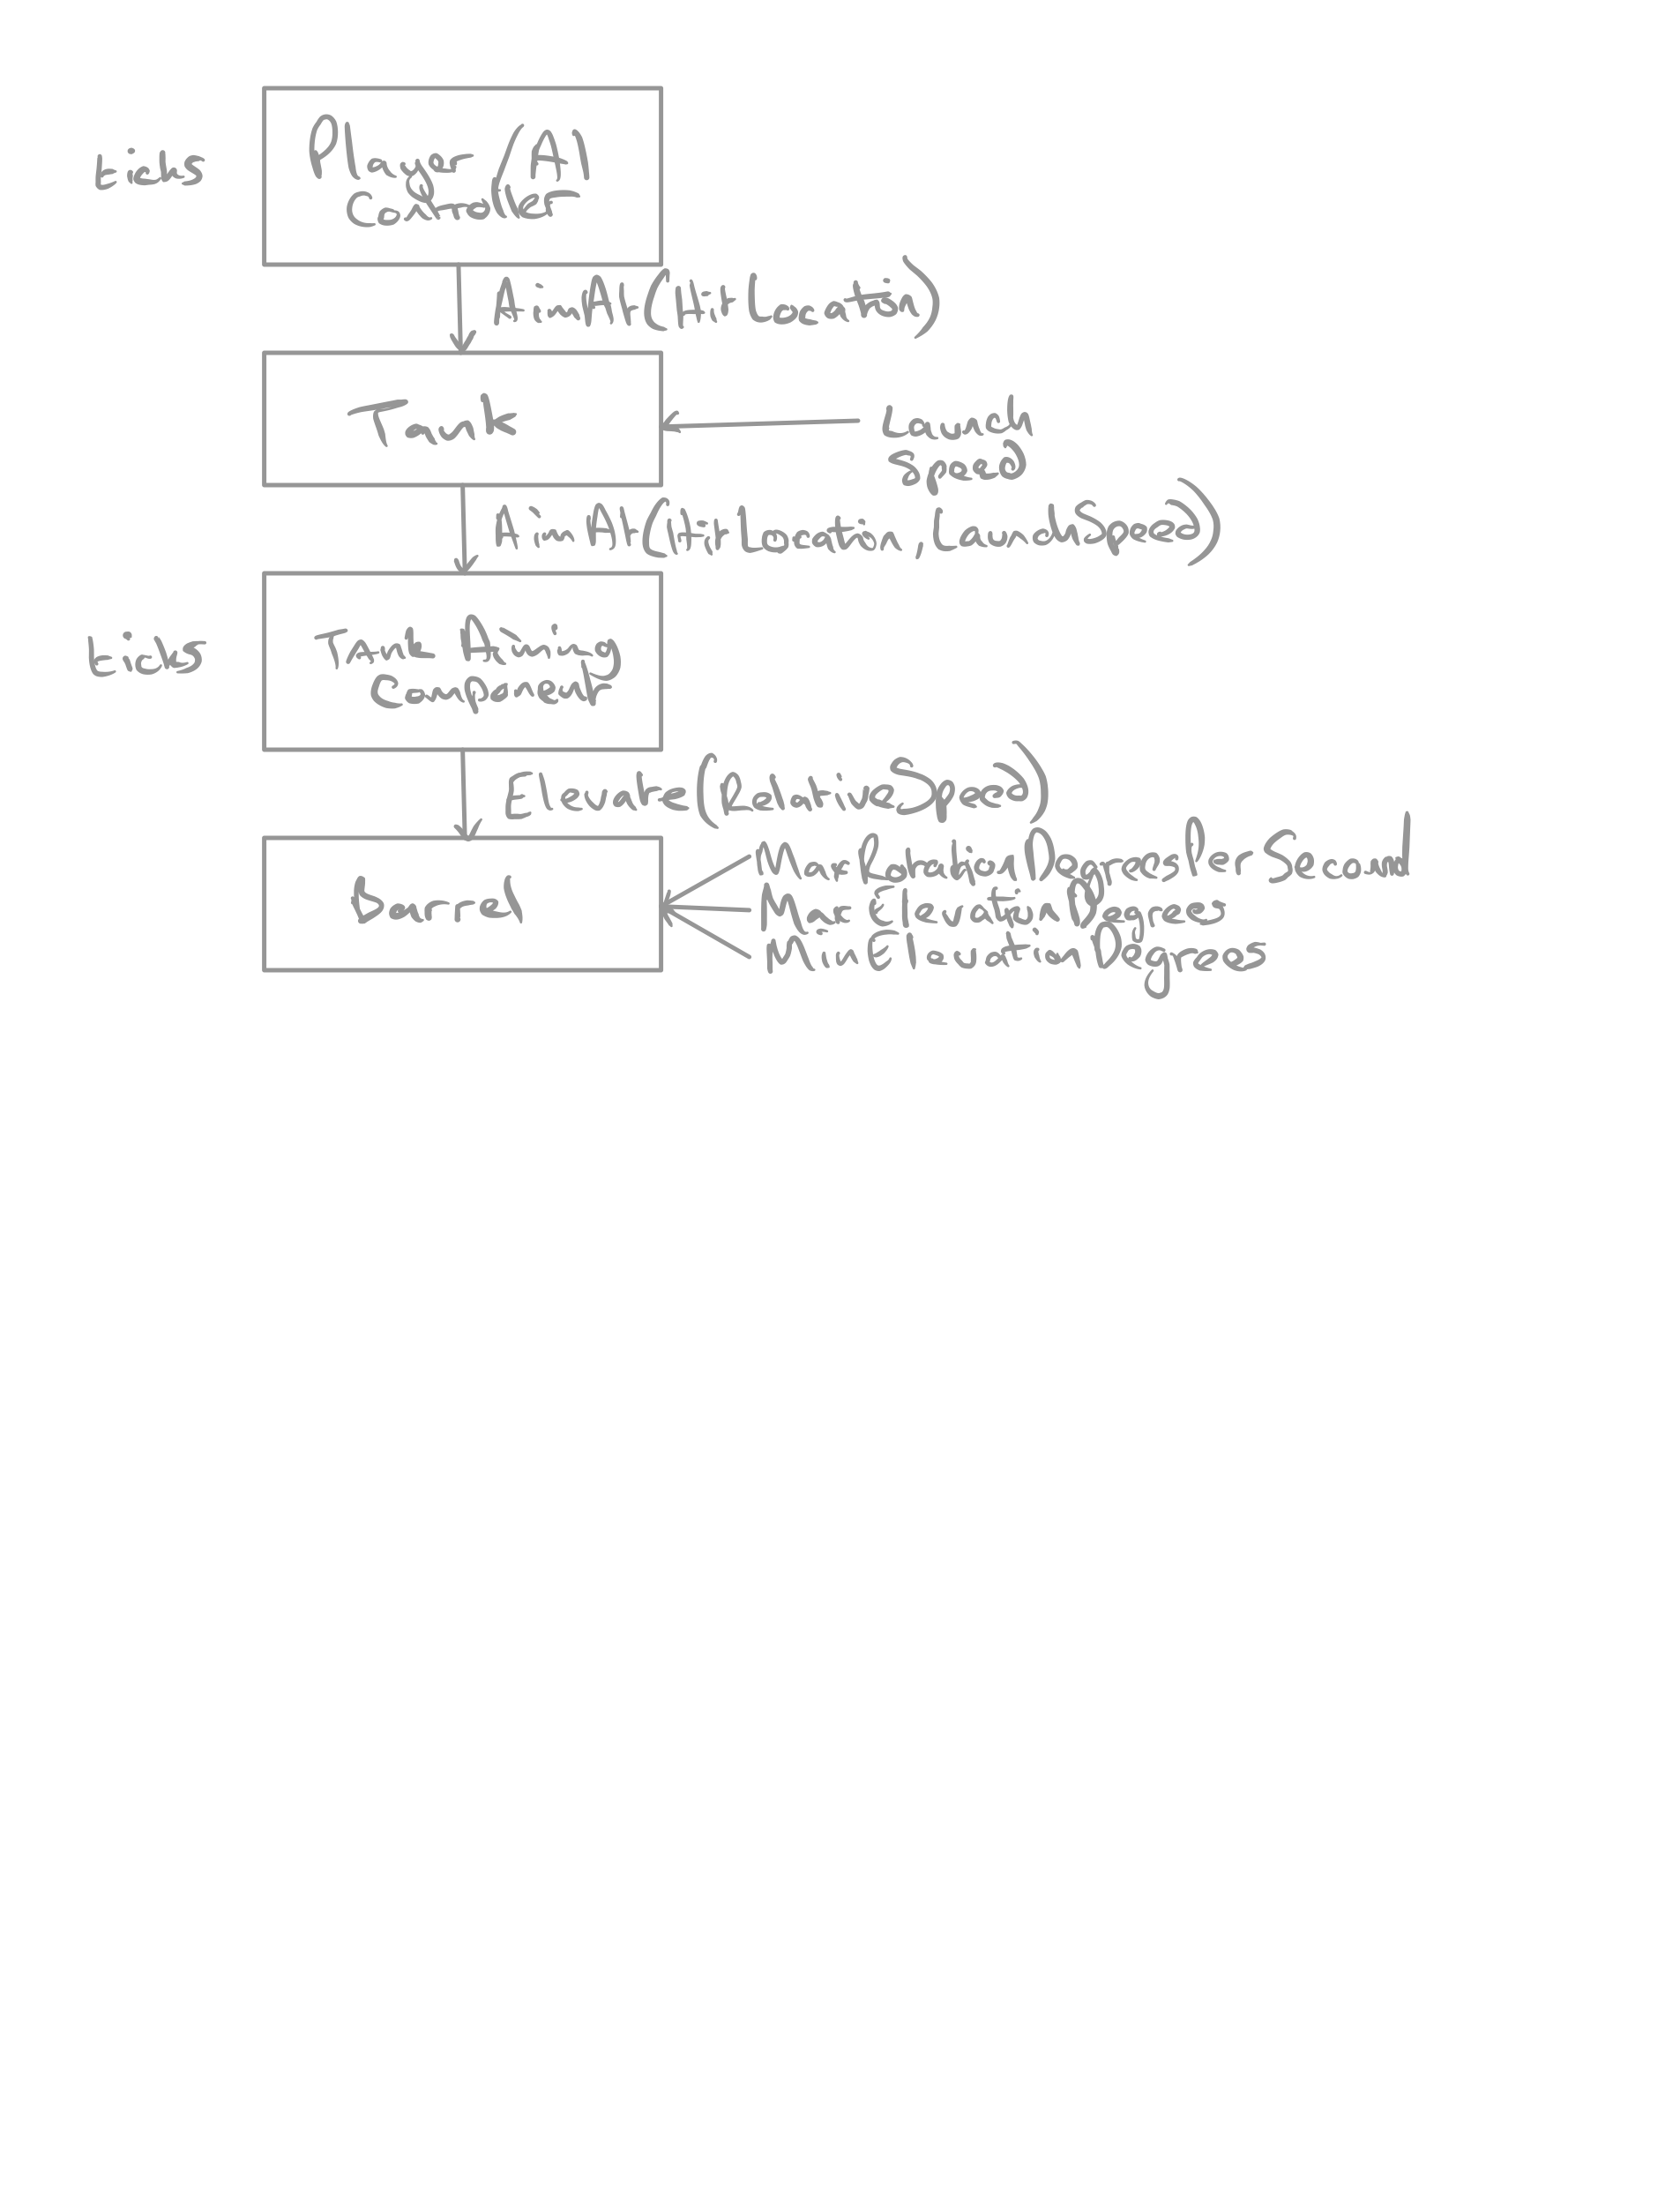 Player/AI
Controller
AimAt(HitLocation)
Tank
Launch
Speed
AimAt(HitLocation, LaunchSpeed)
Tank Aiming
Component
Elevate(RelativeSpeed)
Barrel
MaxRotationDegreesPerSecond
Max Elevation Degrees
Min Elevation Degrees